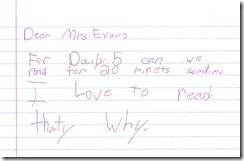 Dear Mrs. Evans
For Daily 5 can we
read for 20 minets somtime
I Love To read
thaty Why.